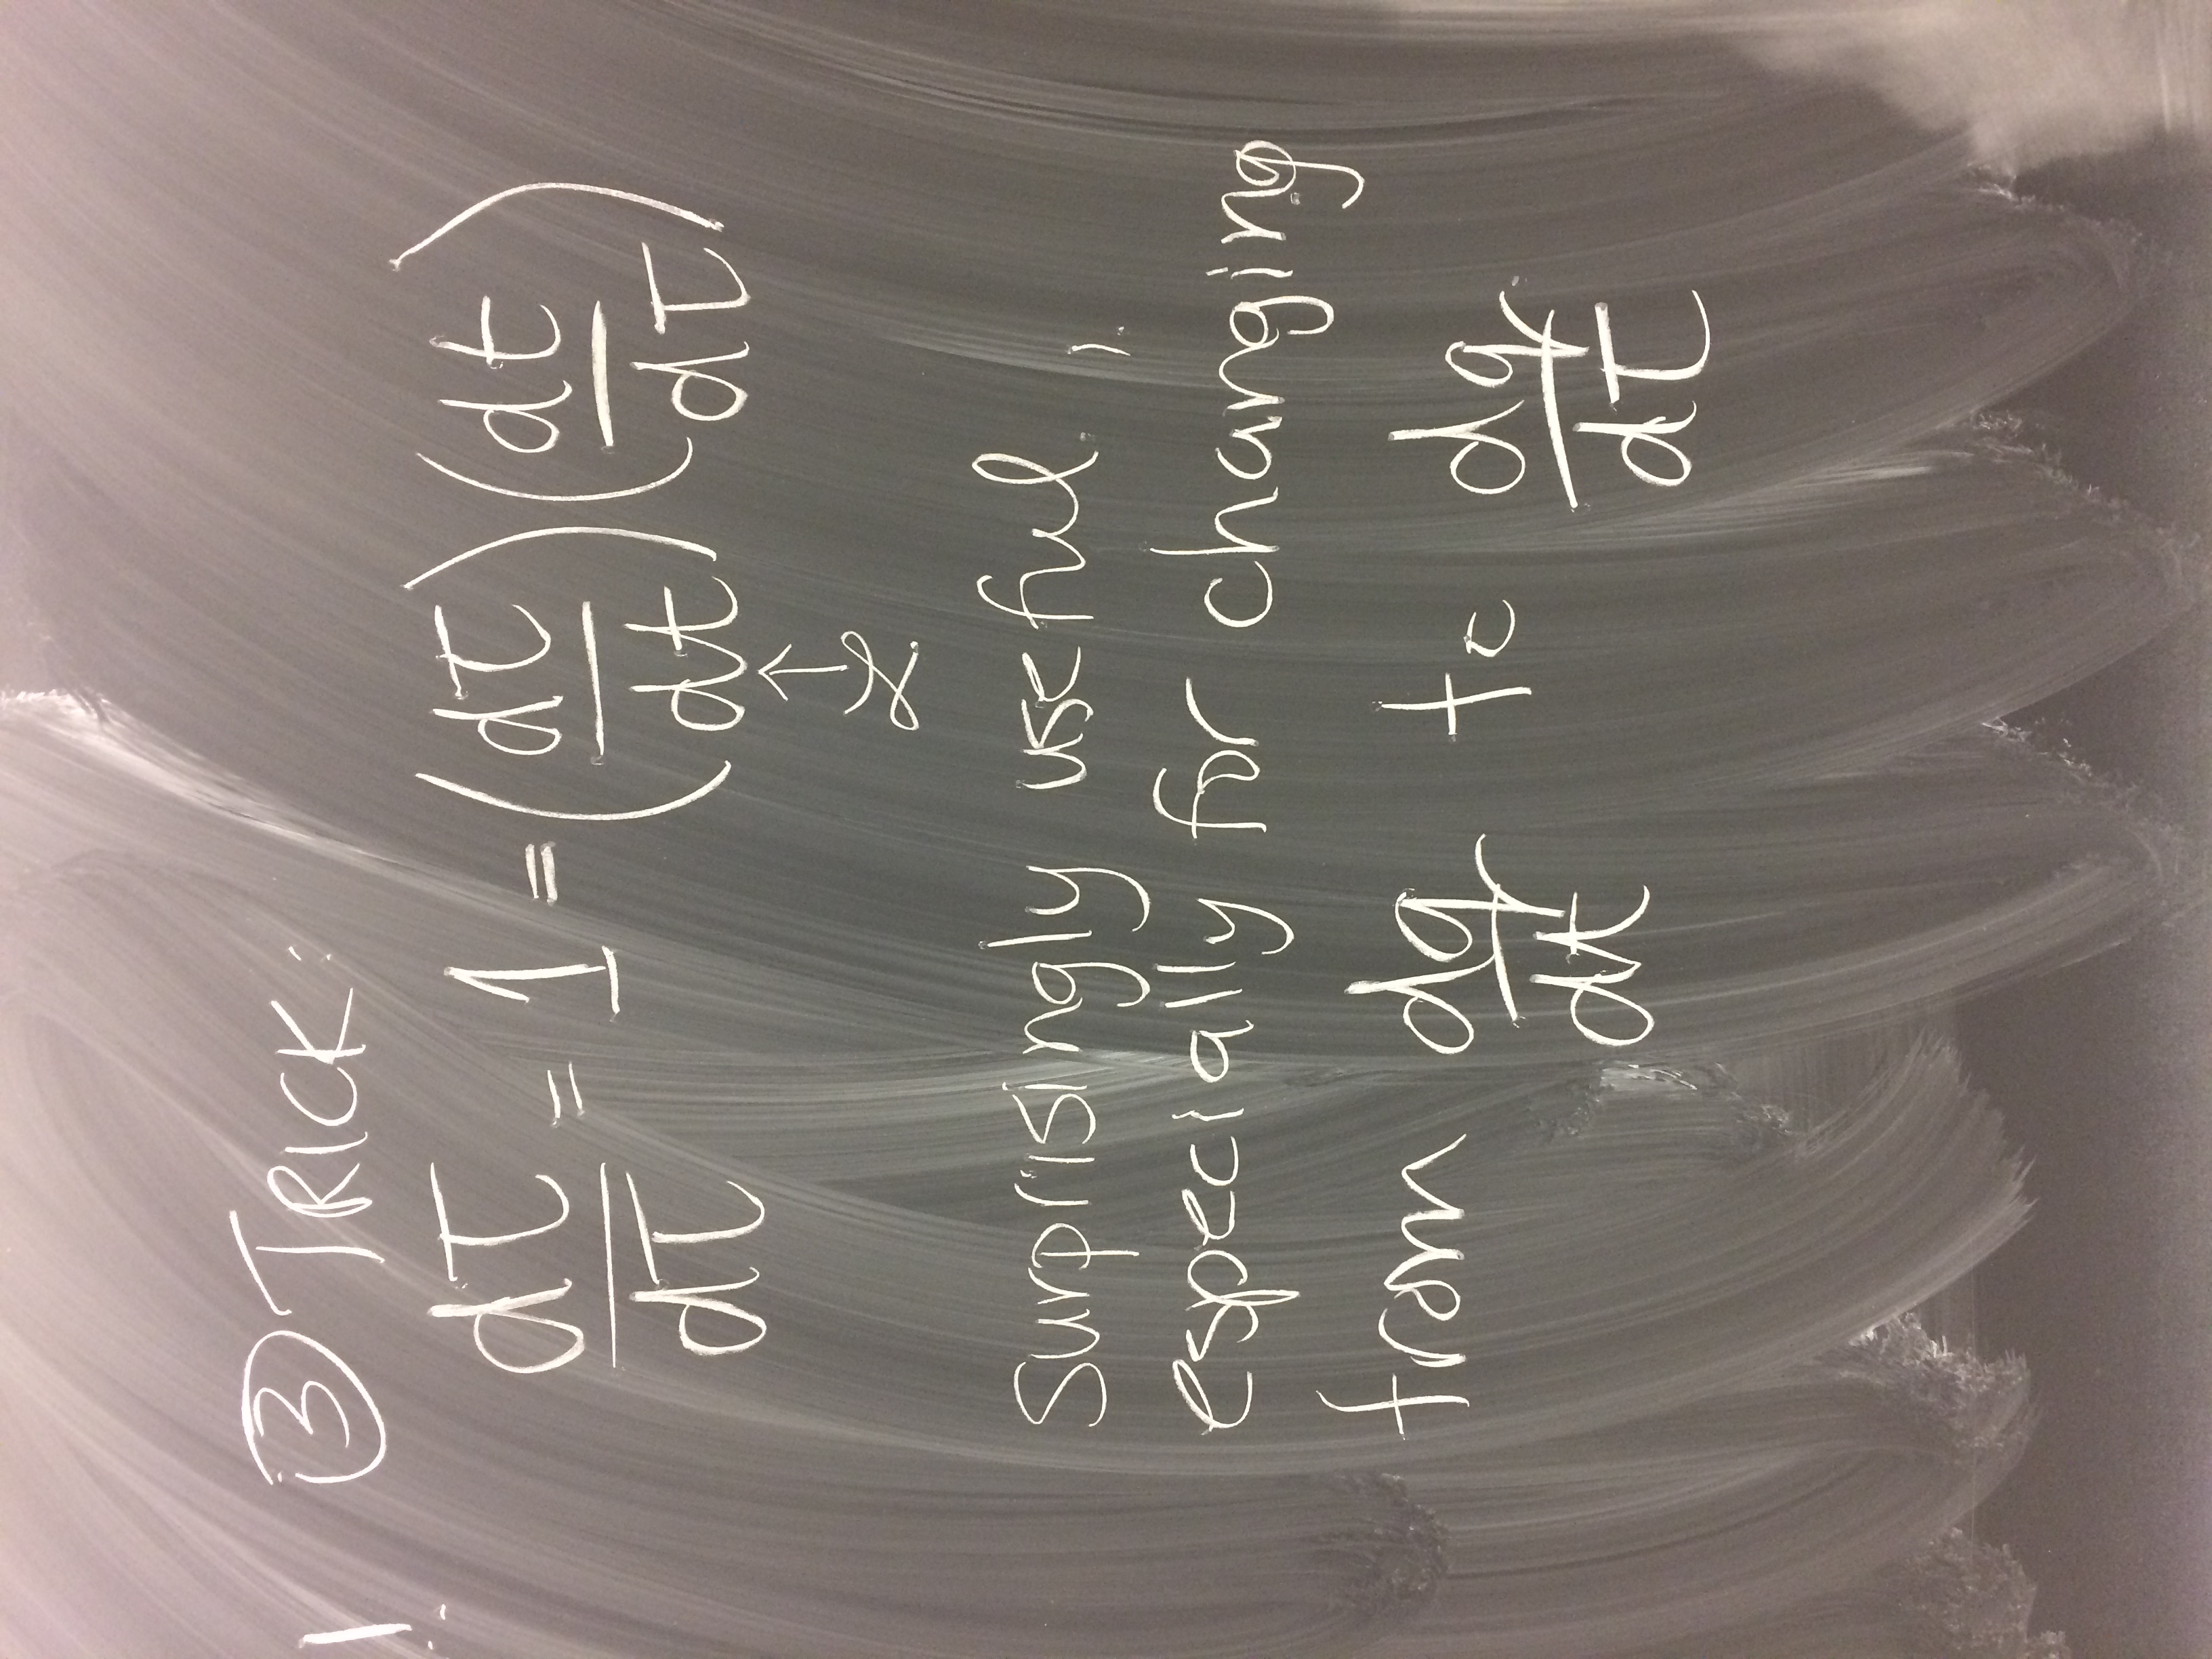 ! ③ TRICK:
dτ/dτ = 1 = (dτ/dt)(dt/dτ)
↑
γ
surprisingly useful,
especially for changing
from dq/dt to dq/dτ